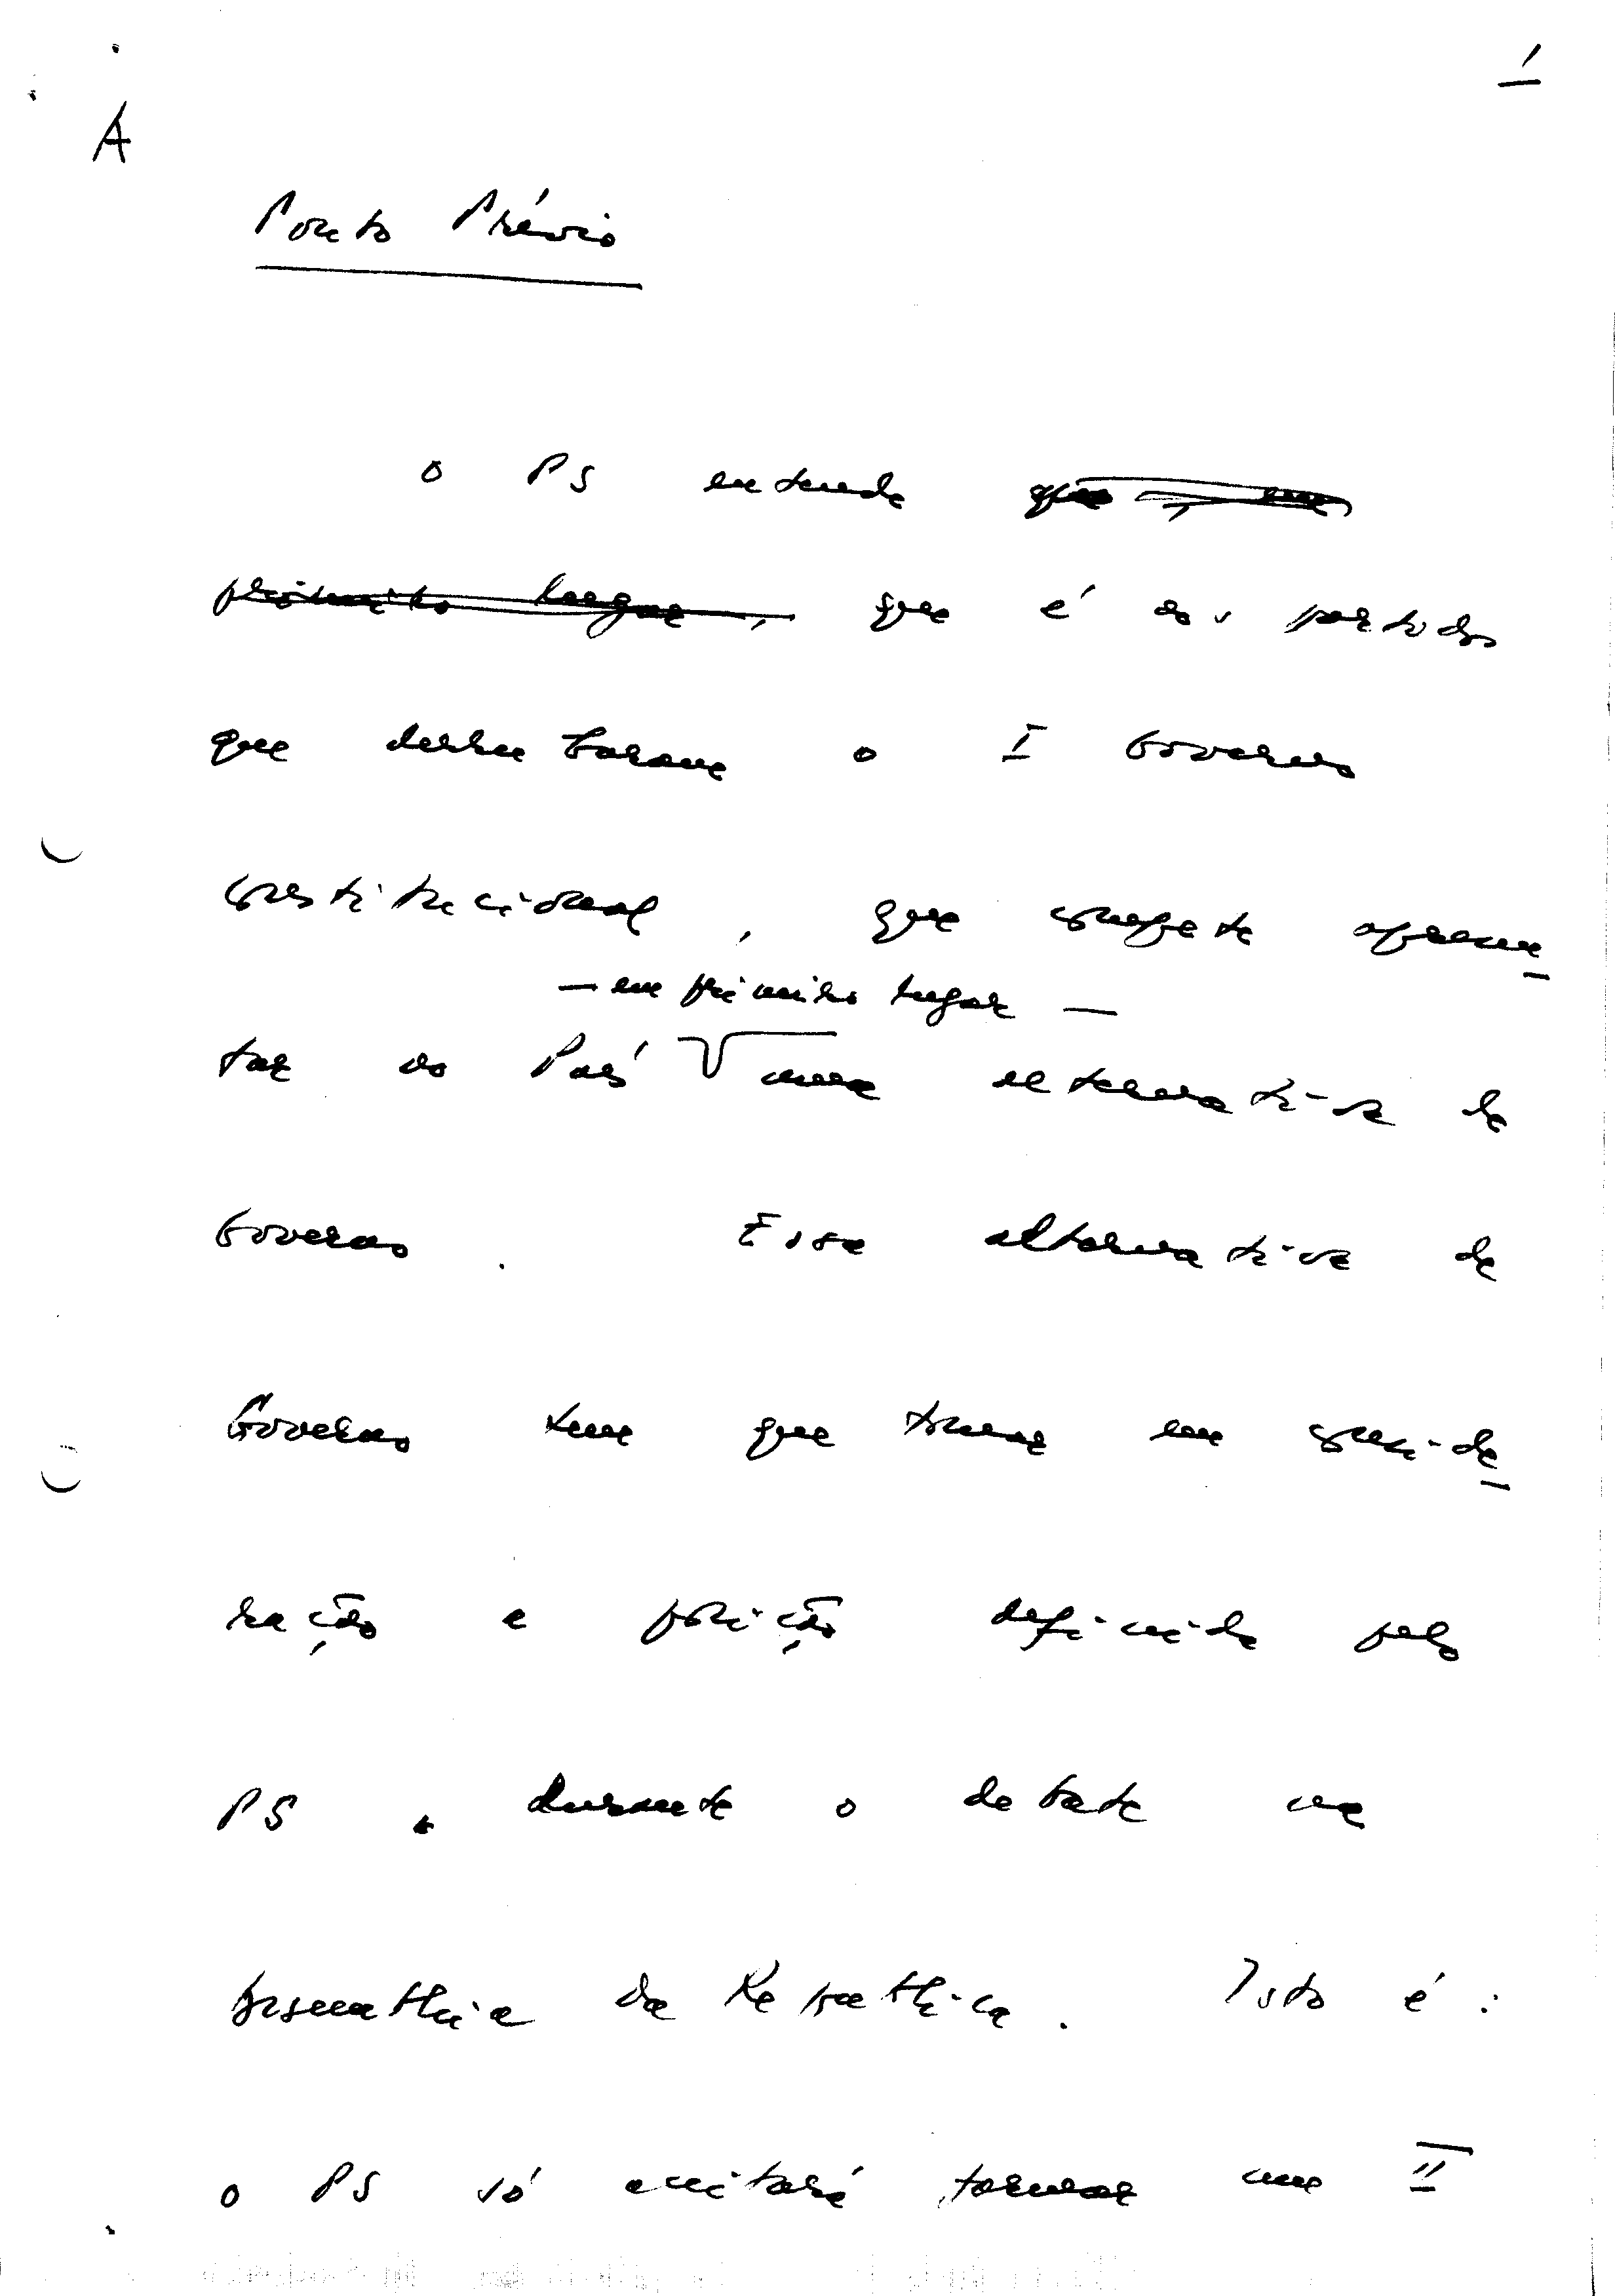 1
A
Ponto Prévio
O PS entende ~~que, em~~
~~primeiro lugar,~~ que é aos partidos
que derrubaram o I Governo
Constitucional, que compete apresen-
— em primeiro lugar —
tar ao País uma alternativa de
Governo. Essa alternativa de
Governo tem que tomar em conside-
ração a posição definida pelo
PS durante o debate na
Assembleia da República. Isto é:
o PS só aceitará formar um II